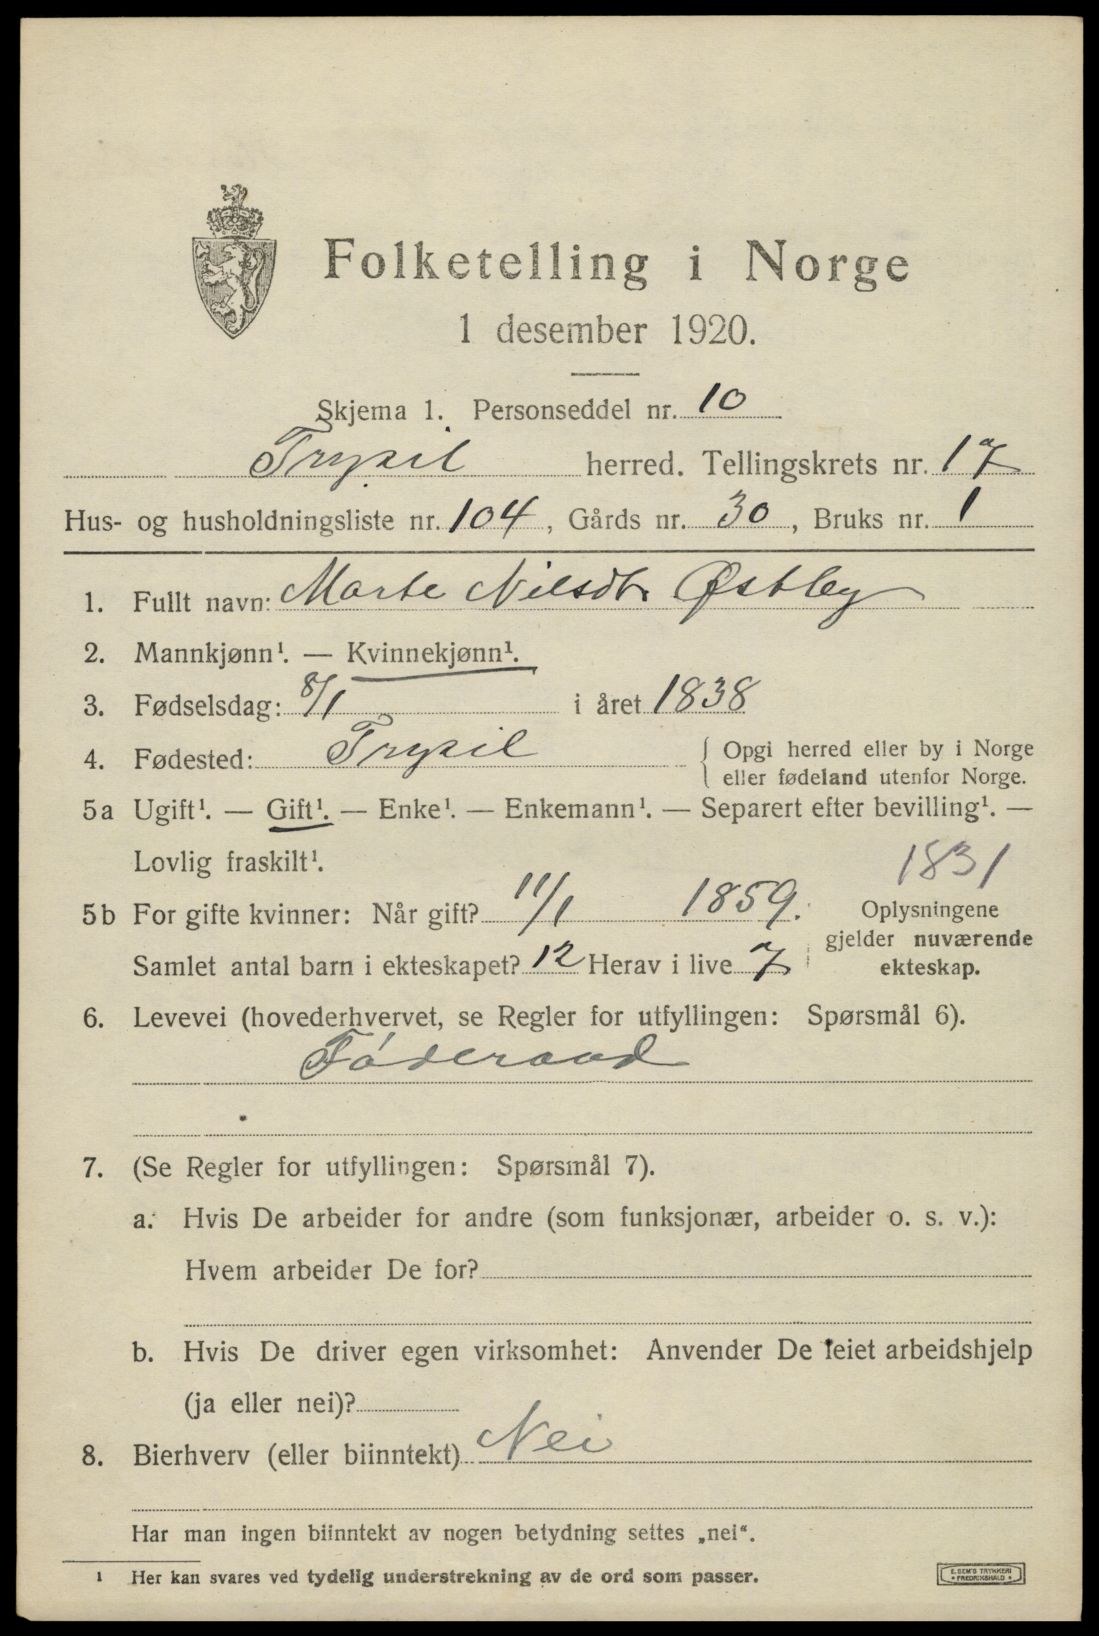 Folketelling i Norge
1 desember 1920.
Skjema 1. Personseddel nr. 10
Trysil herred. Tellingskrets nr. 17
Hus- og husholdningsliste nr. 104, Gårds nr. 30, Bruks nr. 1
1. Fullt navn: Marte Nilsdtr Østby
2. Mannkjønn¹. — Kvinnekjønn¹.
3. Fødselsdag: 8/1 i året 1838
4. Fødested: Trysil { Opgi herred eller by i Norge
eller fødeland utenfor Norge.
5a Ugift¹. — Gift¹. — Enke¹. — Enkemann¹. — Separert efter bevilling¹. —
Lovlig fraskilt¹. 1831
5b For gifte kvinner: Når gift? 11/1 1859. Oplysningene
gjelder nuværende
Samlet antal barn i ekteskapet? 12 Herav i live 7 ekteskap.
6. Levevei (hovederhvervet, se Regler for utfyllingen: Spørsmål 6).
Føderaad
7. (Se Regler for utfyllingen: Spørsmål 7).
a. Hvis De arbeider for andre (som funksjonær, arbeider o. s. v.):
Hvem arbeider De for?
b. Hvis De driver egen virksomhet: Anvender De leiet arbeidshjelp
(ja eller nei)?
8. Bierhverv (eller biinntekt) Nei
Har man ingen biinntekt av nogen betydning settes „nei“.
¹ Her kan svares ved tydelig understrekning av de ord som passer.
E. SEM'S TRYKKERI
• FREDRIKSHALD •